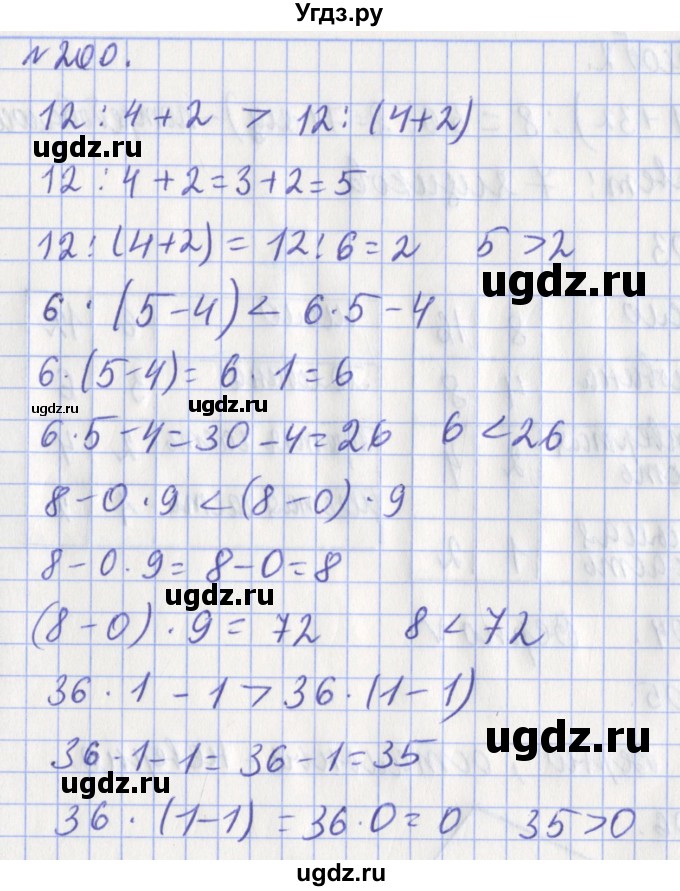 Угдз.ру
№200.
12 : 4 + 2 > 12 : (4+2)
ugdz.ru
12 : 4 + 2 = 3 + 2 = 5
12 : (4+2) = 12 : 6 = 2 5 > 2
ugdz.ru
6 · (5 - 4) < 6 · 5 - 4
6 · (5 - 4) = 6 · 1 = 6
ugdz.ru ugdz.ru
6 · 5 - 4 = 30 - 4 = 26 6 < 26
8 - 0 · 9 < (8 - 0) · 9
8 - 0 · 9 = 8 - 0 = 8
ugdz.ru
(8 - 0) · 9 = 72 8 < 72
36 · 1 - 1 > 36 · (1 - 1)
ugdz.ru
36 · 1 - 1 = 36 - 1 = 35
ugdz.ru
36 · (1 - 1) = 36 · 0 = 0 35 > 0
ugdz.ru ugdz.ru